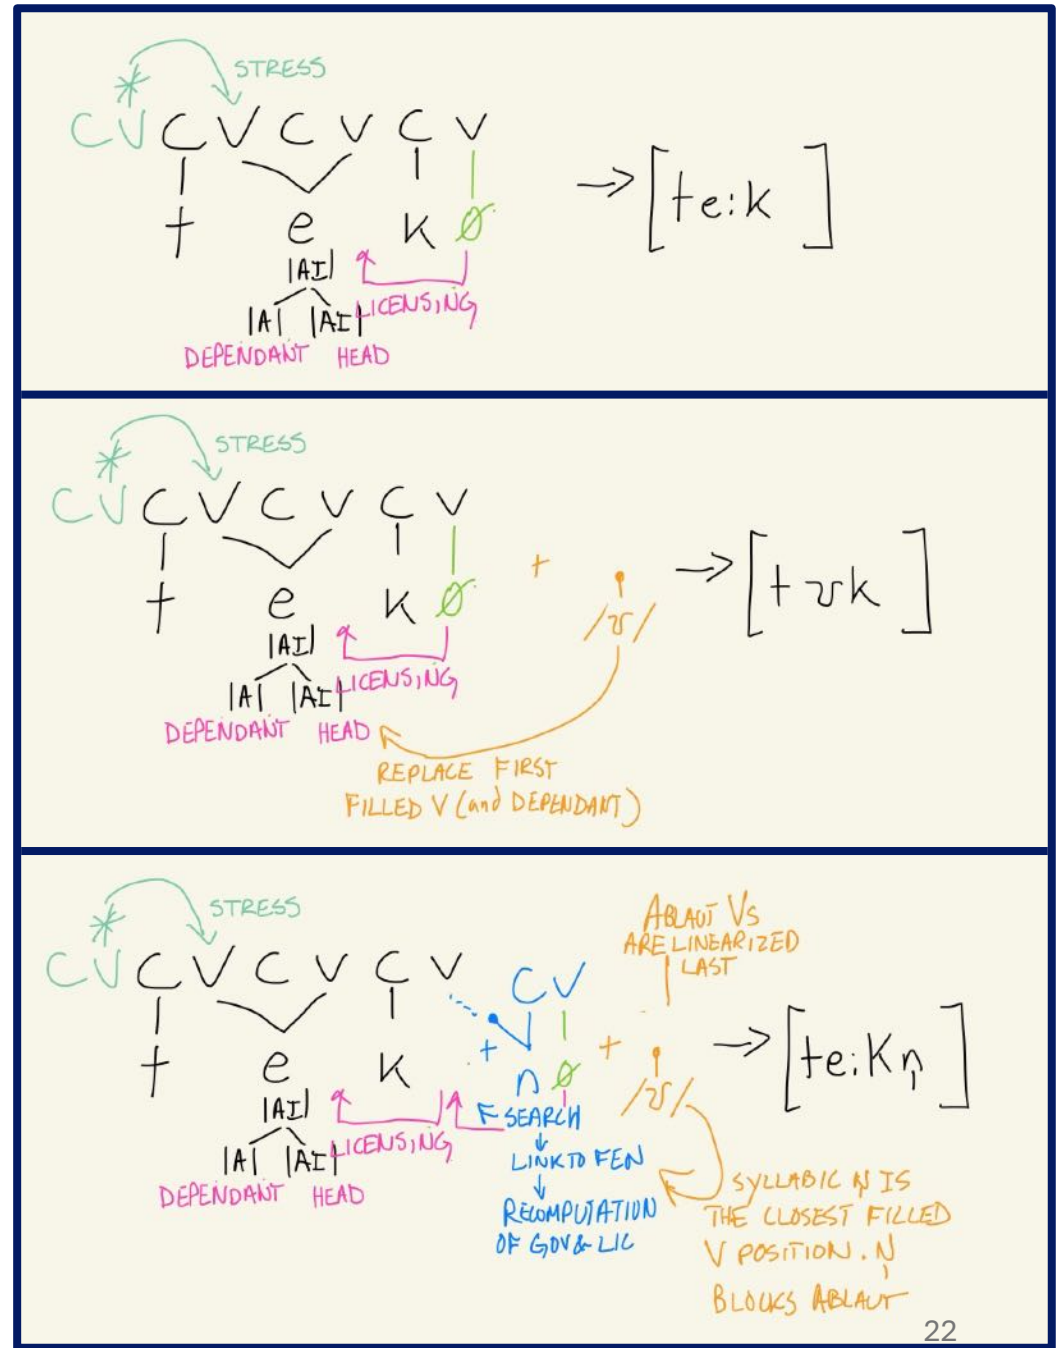 STRESS
CVCVCVCV
t e k ø
→[te:k]
|AI|
LICENSING
|A| |AI|
DEPENDANT HEAD
STRESS
CVCVCVCV
t e k ø + /ʊ/ →[tʊk]
|AI|
LICENSING
|A| |AI|
DEPENDANT HEAD
REPLACE FIRST
FILLED V (and DEPENDANT)
STRESS
ABLAUT VS
ARE LINEARIZED
LAST
CVCVCVCV CV
t e k + n ø + /ʊ/ →[te:kn̩]
|AI|
LICENSING
|A| |AI|
DEPENDANT HEAD
SEARCH
↓
LINK TO FEN
↓
RECOMPUTATION
OF GOV & LIC
SYLLABIC n̩ IS
THE CLOSEST FILLED
V POSITION. N̩
BLOCKS ABLAUT
22